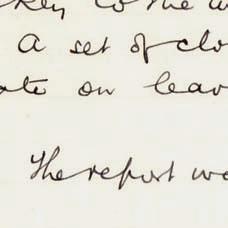 to the
A set of clo
on leav
The report we